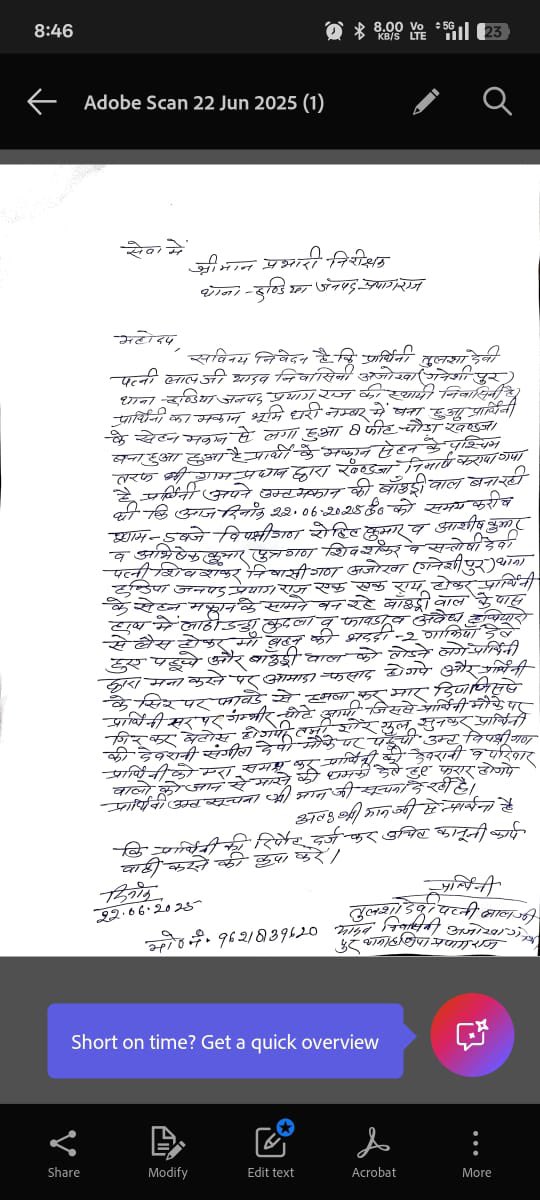 8:46
8.00 KB/S Vo LTE 5G 23
Adobe Scan 22 Jun 2025 (1)
सेवा में
श्रीमान प्रभारी निरीक्षक
थाना - हण्डिया जनपद - प्रयागराज
महोदय,
सविनय निवेदन है कि प्रार्थिनी तुलशा देवी
पत्नी लालजी यादव निवासिनी अजोखा (गनेशीपुर)
थाना - हण्डिया जनपद प्रयागराज की स्थायी निवासिनी है।
प्रार्थिनी का मकान भूमि धरी नम्बर में बना हुआ प्रार्थिनी
के सेहन मकान से लगा हुआ 8 फीट चौड़ा खड़ण्जा
बना हुआ हुआ है प्रार्थी के मकान सेहन के पश्चिम
तरफ भी ग्राम प्रधान द्वारा खंडण्जा निर्माण कराया गया
है प्रार्थिनी अपने उक्त मकान की बाँउड्री वाल बना रही
थी कि आज दिनांक 22.06.2025 ई० को समय करीब
शाम - 5 बजे विपक्षीगण रोहित कुमार व आशीष कुमार
व अभिषेक कुमार पुत्रगण शिवशंकर व सन्तोषी देवी
पत्नी शिवशंकर निवासीगण अजोखा (गनेशीपुर) थाना
हण्डिया जनपद प्रयागराज एक एक राय होकर प्रार्थिनी
के सेहन मकान के सामने बन रहे बाउड्री वाल के पास
हाथ में लाठी डन्डा कुदला व फावड़ा व अवैध हथियारो
से लैस होकर माँ बहन की भद्दी -2 गालिया देते
हुए पहुचे और बाउड्री वाल को तोड़ने लगे प्रार्थिनी
द्वारा मना करने पर आमादा फसाद होगये और प्रार्थिनी
के सिर पर फावडे से हमला कर मार दिया जिससे
प्रार्थिनी सर पर गम्भीर चोटे आयी जिससे प्रार्थिनी मौके पर
गिर कर बेहोस होगयी तभी शोर गुल सुनकर प्रार्थिनी
की देवरानी संगीता देवी मौके पर पहुची उक्त विपक्षीगण
प्रार्थिनी को मरा समझ कर प्रार्थिनी की देवरानी व परिवार
वालो को जान से मारने की धमकी देते हुए फरार होगये
प्रार्थिनी उक्त सूचना श्री मान जी सूचना दे रही है।
अतः श्री मान जी से प्रार्थना है
कि प्रार्थिनी की रिपोर्ट दर्ज कर उचित कानूनी कार्य
वाही करने की कृपा करे।
दिनांक
22.06.2025
प्रार्थिनी
तुलशा देवी पत्नी लालजी
यादव निवासिनी अजोखा
पुर थाना हण्डिया प्रयागराज
मो० नं.
Short on time? Get a quick overview
Share Modify Edit text Acrobat More